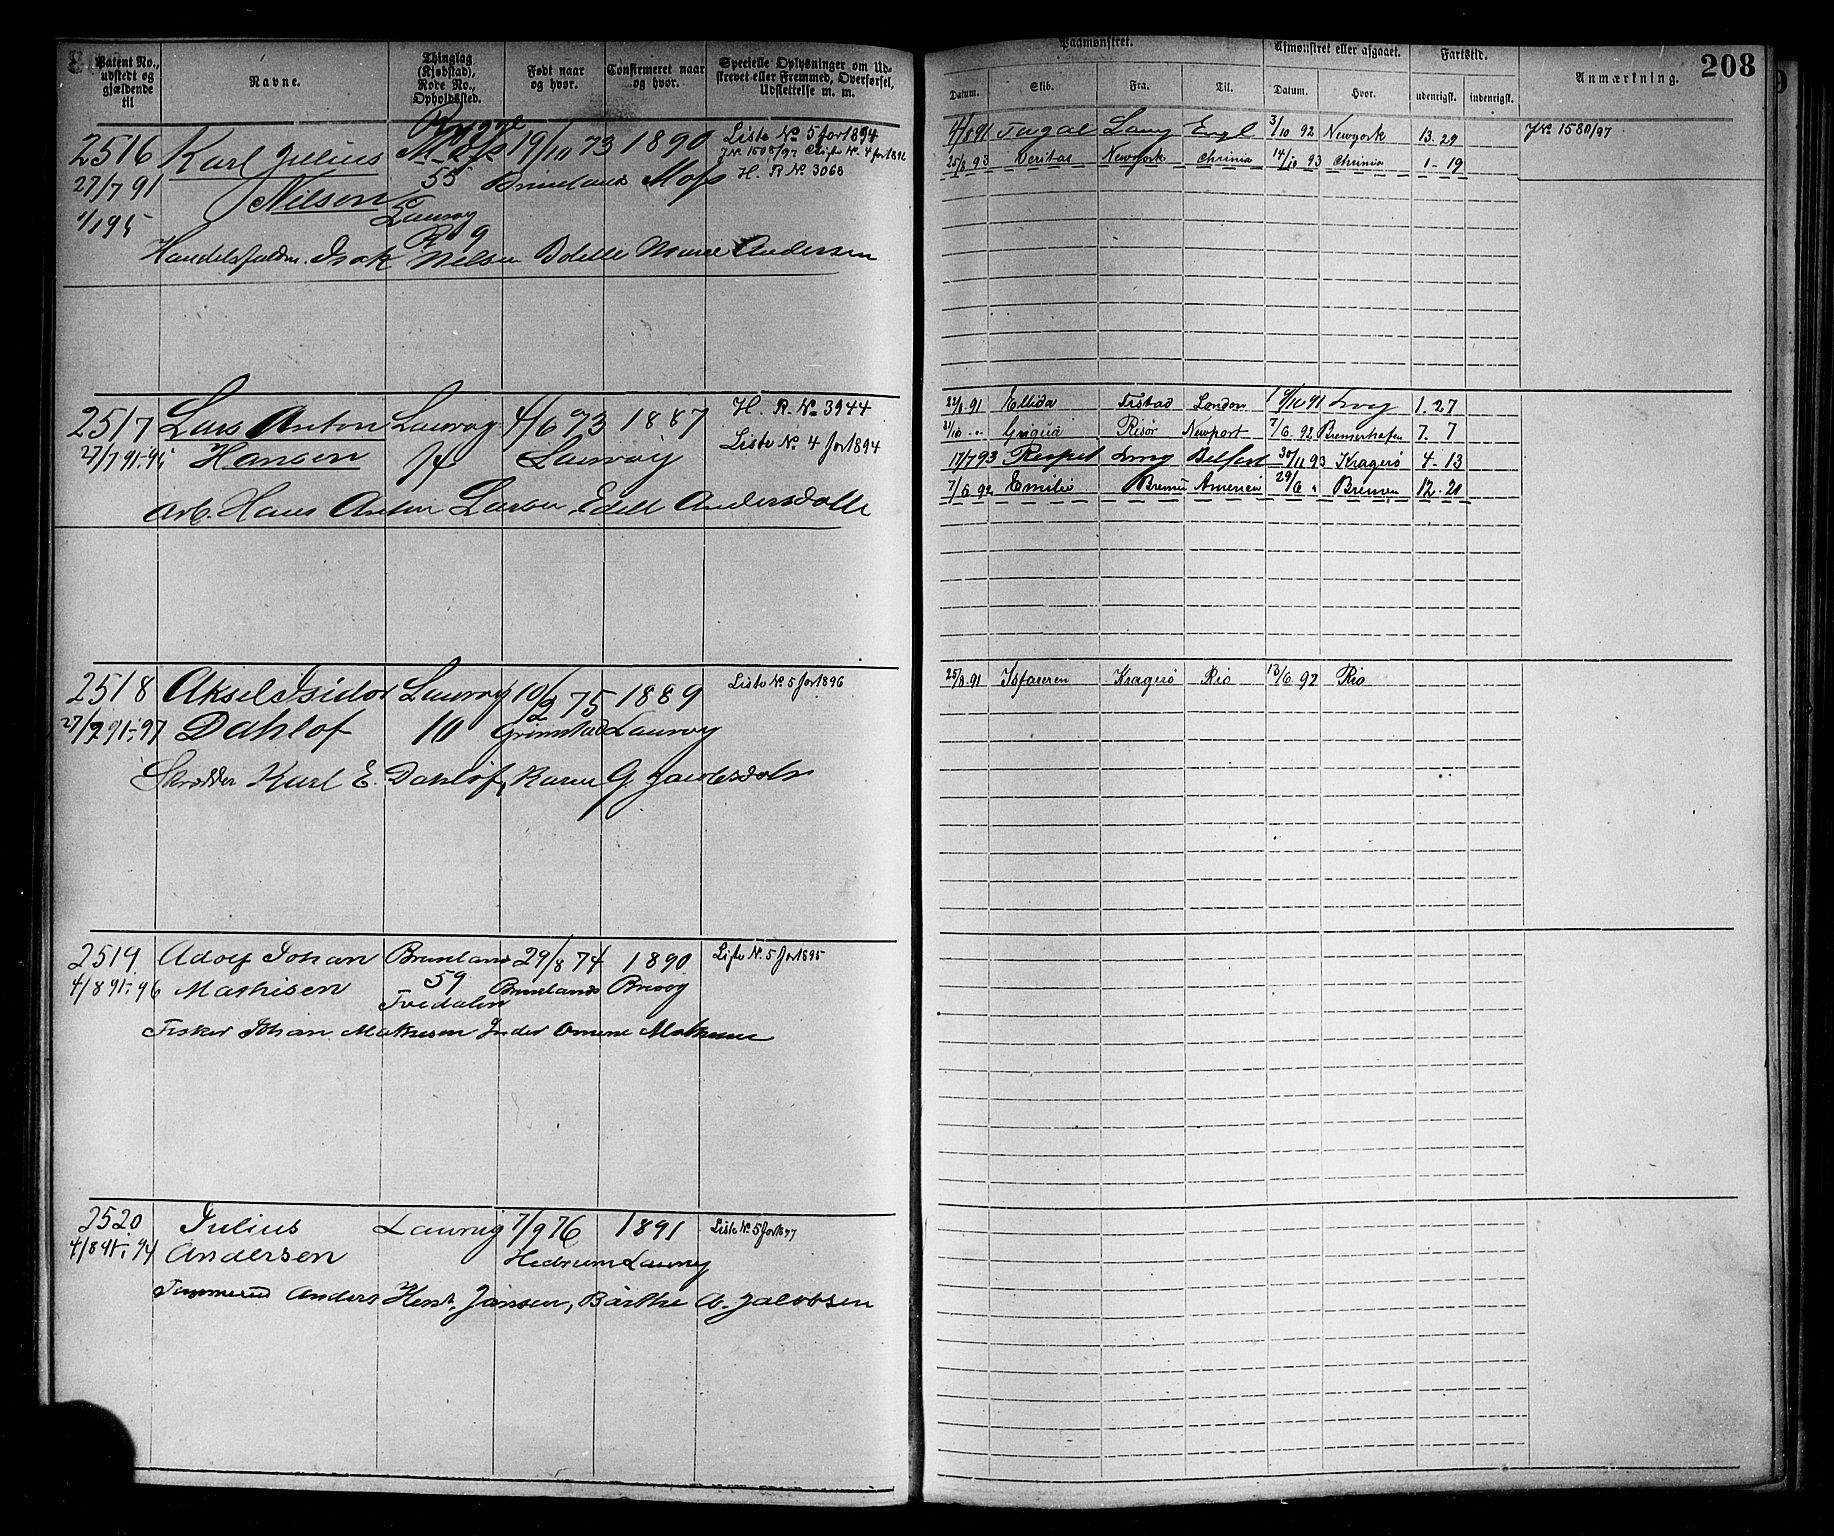 Patent No., udstedt og gjældende til
Navne.
Thinglag (Kjøbstad), Rode No., Opholdssted.
Født naar og hvor.
Confirmeret naar og hvor.
Specielle Oplysninger om Udskrevet eller Fremmed, Overførsel, Udslettelse m. m.
Paamønstret.
Afmønstret eller afgaaet.
Fartstid.
Anmærkning.
208
Datum. Skib. Fra. Til. Datum. Hvor. udenrigsk. indenrigsk.
Rygge
2516 Karl Julius Moss 19/10 73 1890 Liste No 5 for 1894
JNo 1508/97 Liste No 4 for 1896
27/7 91 Nilsen 55 Brunlanes Moss H. R No 3068
1/1 95 Laurvig
R 9
Isak Nilsen Bolette Marie Andersen
4/8 91 Tagal Laurv Engl 3/10 92 Newyork 13. 29 JNo 1580/97
25/8 93 Veritas Newyork Chrinia 14/10 93 Chrinia 1 - 19
2517 Lars Anton Laurvig 4/6 73 1887 H. R. No 3944
27/7 91-96 Hansen 14 Laurvig Liste No 4 for 1894
Arb. Hans Anton Larsen, Edele Andersdatt
22/8 91 Ellida Frstad London 19/10 91 Lvig 1. 27
31/10 " Risør Newport 7/6 92 Bremerhafen 7. 7
17/7 93 Respet Lvig Belfast 30/11 93 Kragerø 4 - 13
7/6 92 Emilie Bremen America 29/6 " Bremen 12. 21
2518 Aksel Isidor Laurvig 10/2 75 1889 Liste No 5 for 1896
27/7 91-97 Dahløf 10 Grimstad Laurvig
Skrædder Karl E. Dahløf, Karen G. Jacobsdatr
25/8 91 Isfareren Kragerø Rio 13/6 92 Rio
2519 Adolf Johan Brunlanes 29/8 74 1890 Liste No 5 for 1895
4/8 91-96 Mathisen 59 Brunlanes Brevig
Tvedalen
Fisker Johan Mathisen Omene Mathisen
2520 Julius Laurvig 7/9 76 1891 Liste No 5 for 1897
4/8 91- 94 Andersen Hedrum Laurvig
Tømmermd Anders Henr. Jansen, Barthe A. Jacobsen